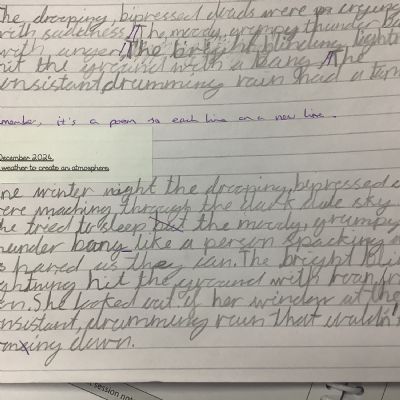 he drooping, bipressed clouds were
with sadness // The moody, grumpy thunder
with anger, // the bright, blinding, lightn
hit the ground with a bang, // The
onsistant, drumming rain had a
member, it's a poem so each line on a new line.
December 2024
weather to create an atmosphere
ne winter night the drooping, bipressed
ere maching through the dark sky
he tried to sleep but the moody, grumpy
hunder bang, like a person
hared as they can. The bright
ghtning hit the ground with
en. She looked out of her window at the
nsistant, drumming rain that
ing down.
session not